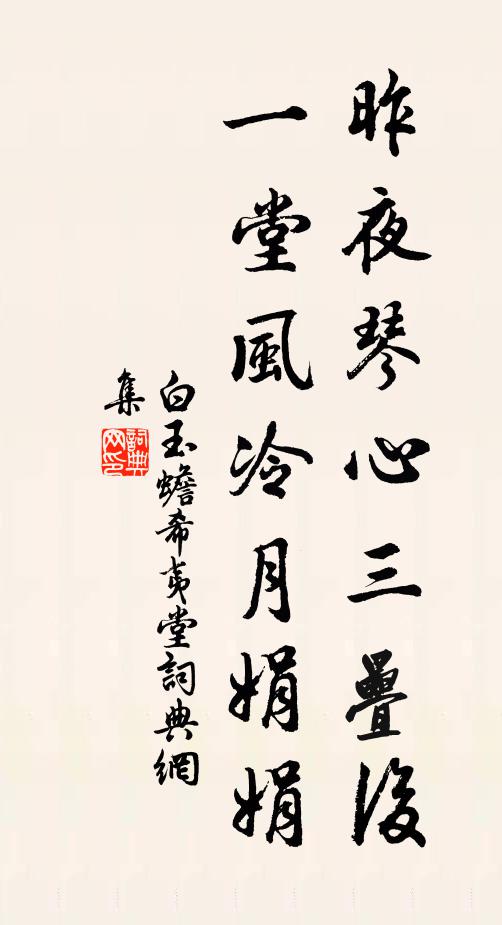 昨夜琴心三疊後
一堂風冷月娟娟
白玉蟾希夷堂詞典網
集
詞典
网印